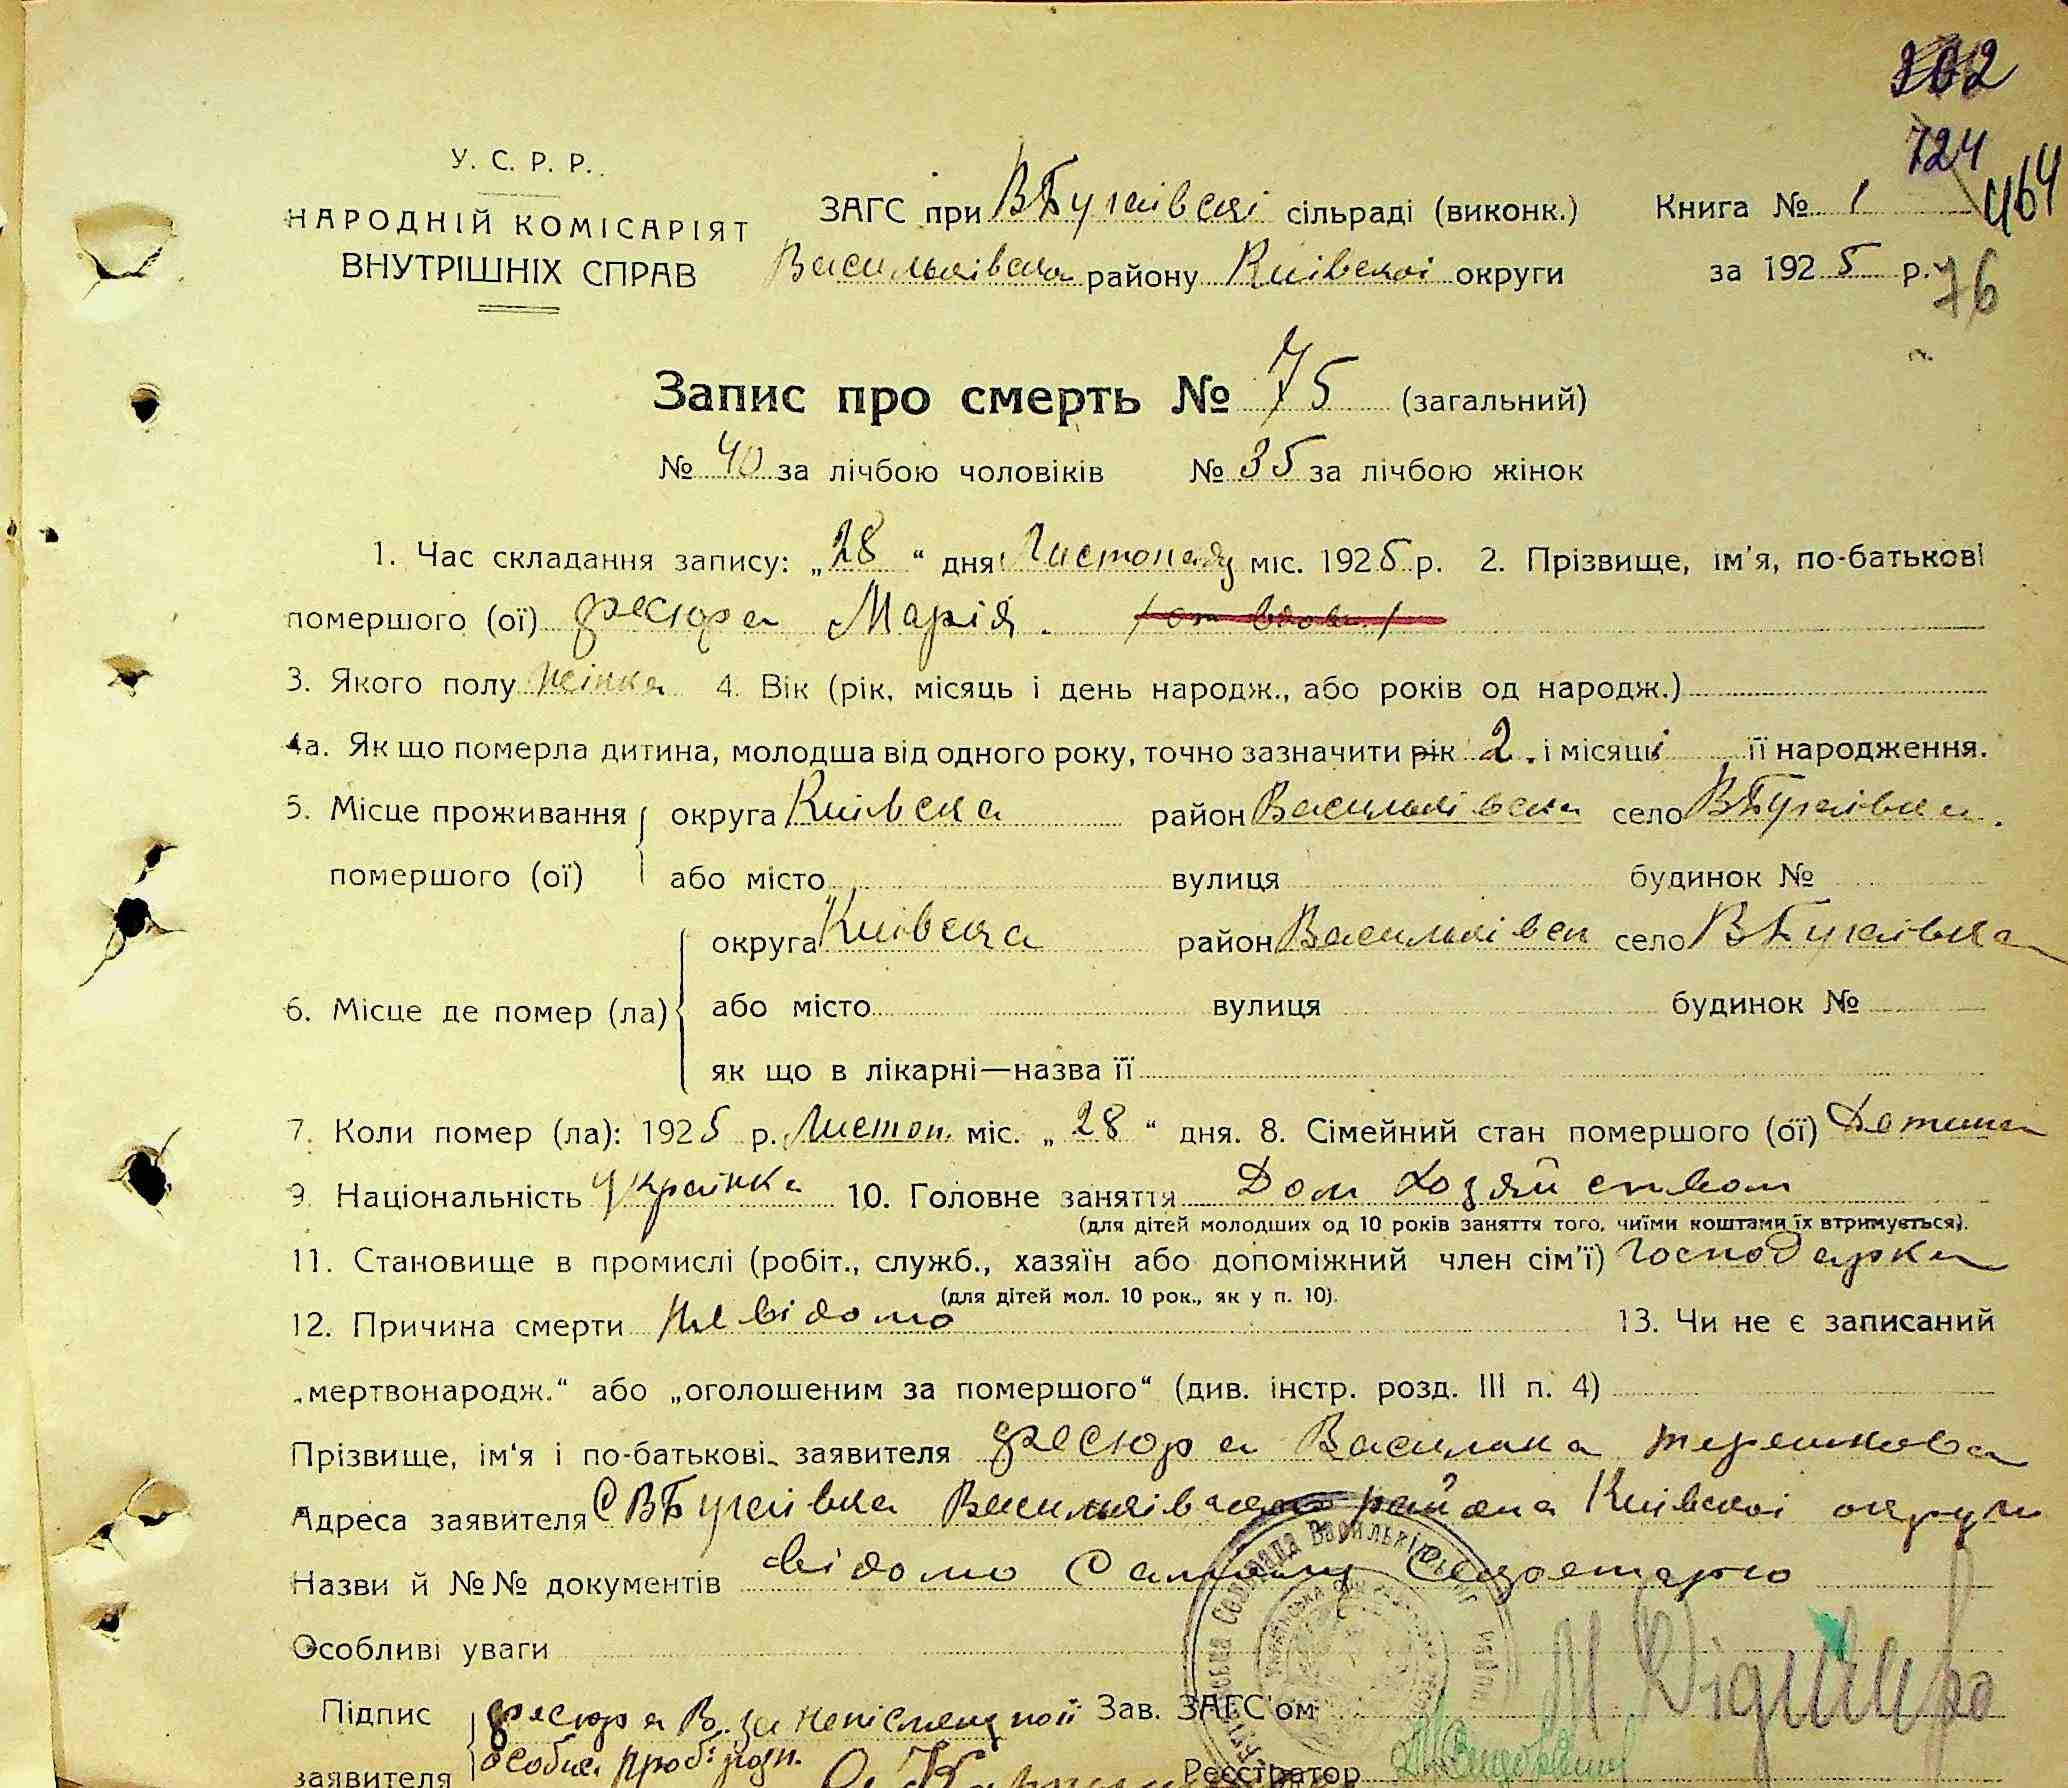 202
724
464
У. С. Р. Р.
НАРОДНІЙ КОМІСАРІЯТ
ВНУТРІШНІХ СПРАВ
ЗАГС при ВБугаївскі сільраді (виконк.) Книга № 1
Васильківска району Київскоі округи за 1925 р.
76
Запис про смерть № 75 (загальний)
№ 40 за лічбою чоловіків № 35 за лічбою жінок
1. Час складання запису: „28“ дня Листопаду міс. 1925 р. 2. Прізвище, ім'я, по-батькові
помершого (ої) Фесюра Марія.
3. Якого полу жінка 4. Вік (рік, місяць і день народж., або років од народж.)
4а. Як що померла дитина, молодша від одного року, точно зазначити рік 2. і місяці її народження.
5. Місце проживання округа Київска район Васильківска село ВБугаівка.
помершого (ої) або місто вулиця будинок №
округа Київска район Васильківск село ВБугаівка
6. Місце де помер (ла) або місто вулиця будинок №
як що в лікарні—назва її
7. Коли помер (ла): 1925 р. Листоп. міс. „28“ дня. 8. Сімейний стан помершого (ої) Детина
9. Національність Українка 10. Головне заняття Дом хозяйством
(для дітей молодших од 10 років заняття того, чиїми коштами їх втримується).
11. Становище в промислі (робіт., служб., хазяїн або допоміжний член сім'ї) Господарка
(для дітей мол. 10 рок., як у п. 10).
12. Причина смерти Невідомо 13. Чи не є записаний
„мертвонародж.“ або „оголошеним за помершого“ (див. інстр. розд. III п. 4)
Прізвище, ім'я і по-батькові заявителя Фесюра Василина
Адреса заявителя С ВБугаівка Васильківскаго района Київскоі округи
Назви й №№ документів відомо Самому Секретарю
Особливі уваги
Підпис Фесюра В. за неписменной Зав. ЗАГС'ом
заявителя Реєстратор